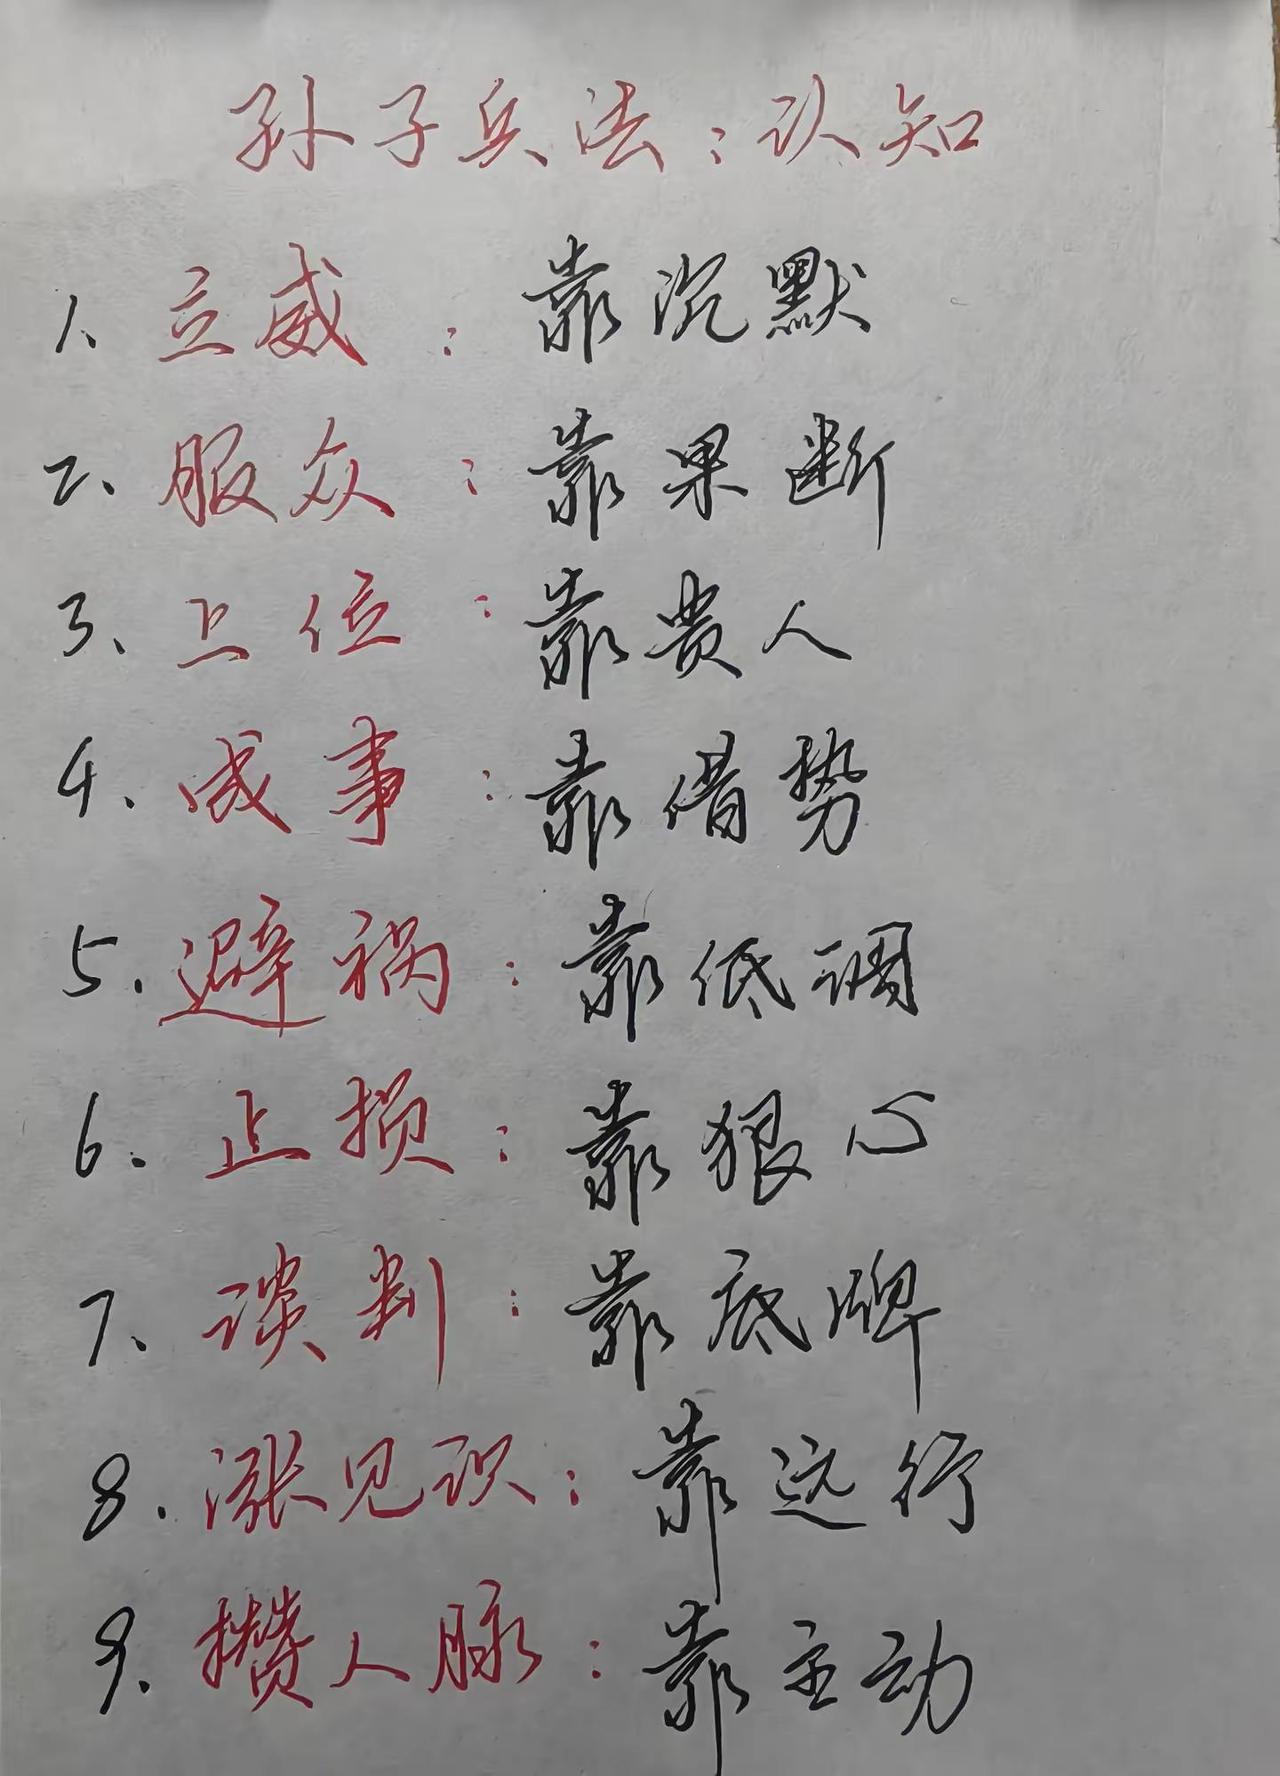 孙子兵法：认知
1、立威：靠沉默
2、服众：靠果断
3、上位：靠贵人
4、成事：靠借势
5.避祸：靠低调
6.止损：靠狠心
7、谈判：靠底牌
8.涨见识：靠远行
9.攒人脉：靠主动